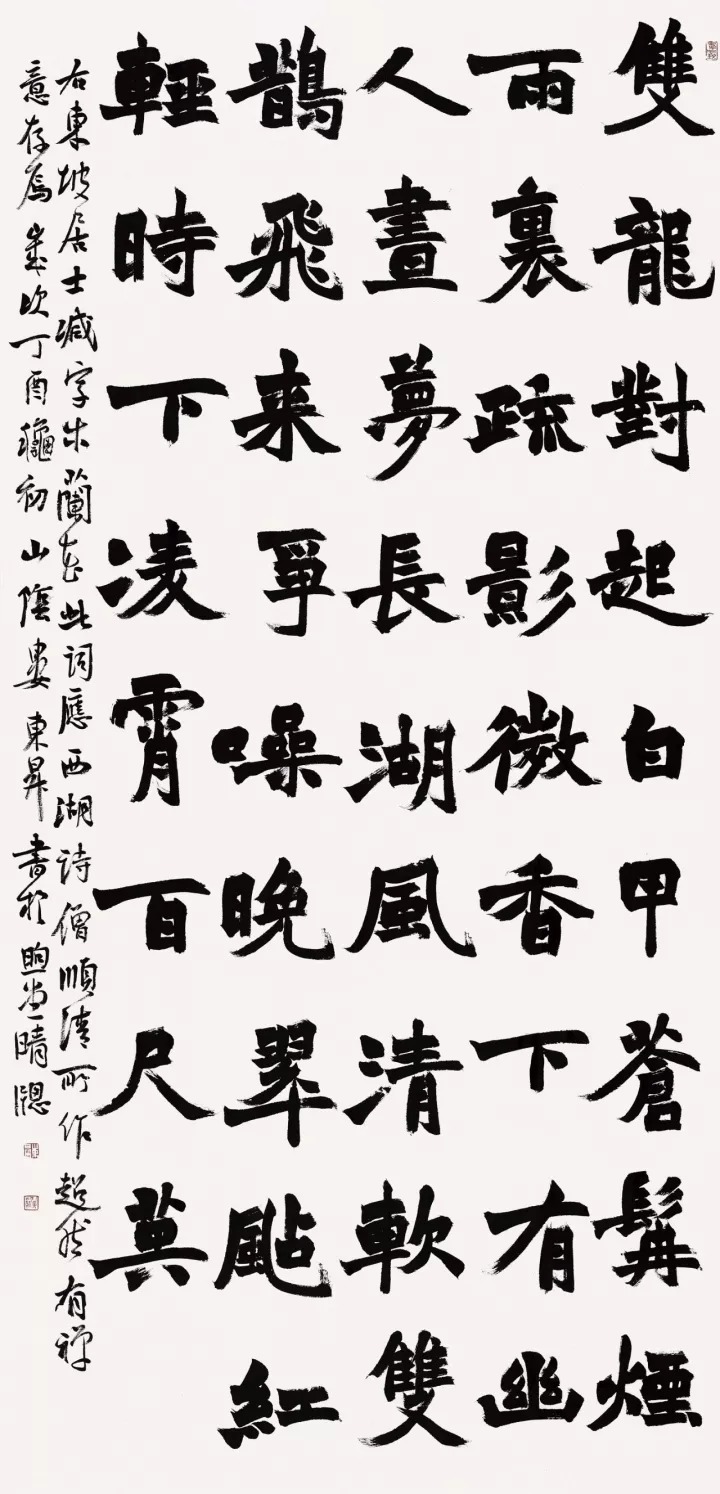 雙龍對起白甲蒼髯煙
雨裏疏影微香下有幽
人晝夢長湖風清軟雙
鵲飛来爭噪晚翠颭紅
輕時下凌霄百尺英
右東坡居士減字木蘭花此詞應西湖詩僧順清所作超然有禪
意存焉歲次丁酉龝初山陰婁東昇書於煦堂晴牕